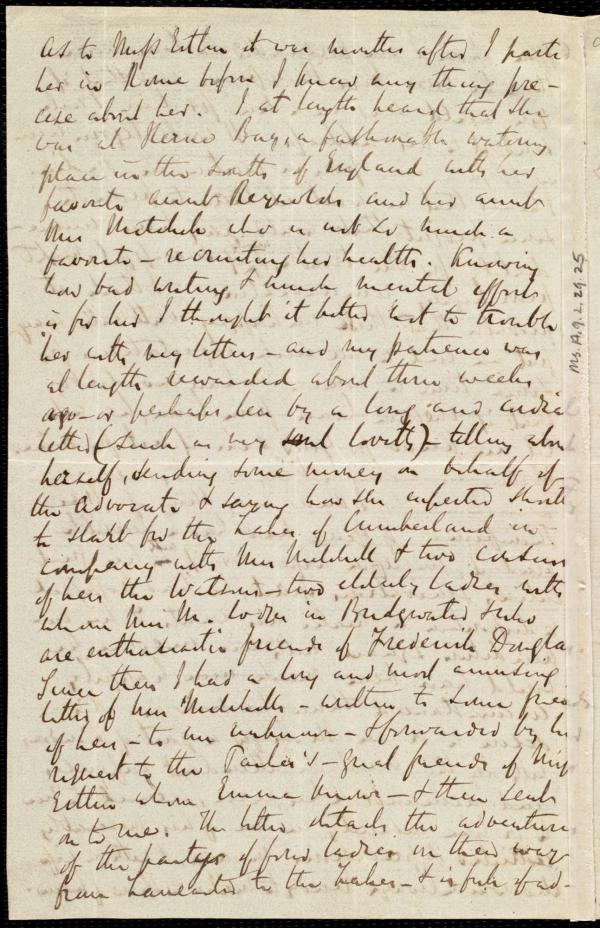 As to Miss Estlin it was months after I parte
her in Rome before I knew any thing pre-
cise about her. I at length heard that she
was at Herne Bay, a fashionable watering
place in the South of England with her
favorite aunt Reynolds and her aunt
Mrs Mitchell who is not so much a
favorite - recruiting her health. Knowing
how bad writing & much mental effort
is for her I thought it better not to trouble
her with my letters - and my patience was
at length rewarded about three weeks
ago - or perhaps less by a long and cordia
letter (such as my soul loveth) - telling abou
herself, sending some money on behalf of
the Advocate & saying how she expected shortl
to start for the Lakes of Cumberland in
company with Mrs Mitchell & two cousins
of hers the Watsons - two elderly ladies with
whom Mrs M. lodges in Bridgwater & who
are enthusiastic friends of Frederick Dougla
Since then I had a long and most amusing
letter of Mrs Mitchells - written to some frien
of hers - to me unknown - & forwarded by her
request to the - great friends of Miss
Estlin whom Emma knows - & then sent
on to me. The letter details the adventures
of the party of four ladies on their way
from Lancaster to the Lakes - & is full of ad-
Ms. A.9.2.29.25